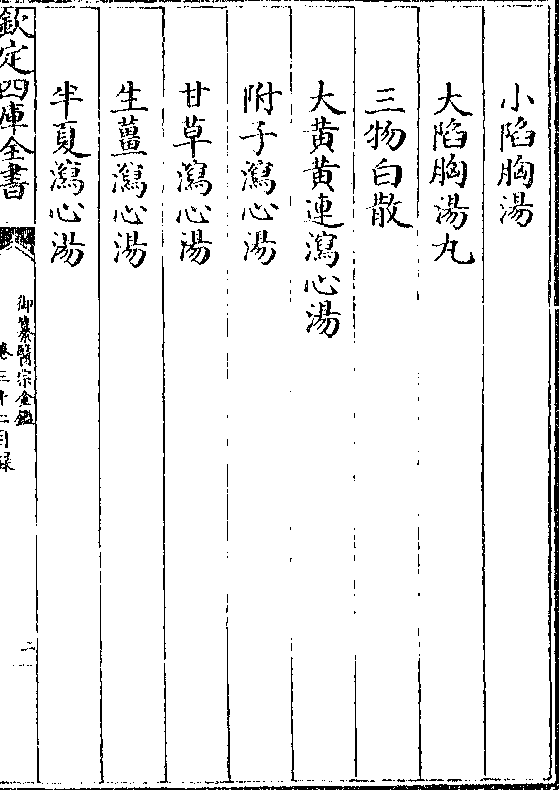 小陷胸湯
大陷胸湯丸
三物白散
大黄黄連瀉心湯
附子瀉心湯
甘草瀉心湯
生薑瀉心湯
半夏瀉心湯
欽定四庫全書
御纂醫宗金鑑
卷三十二目録
二